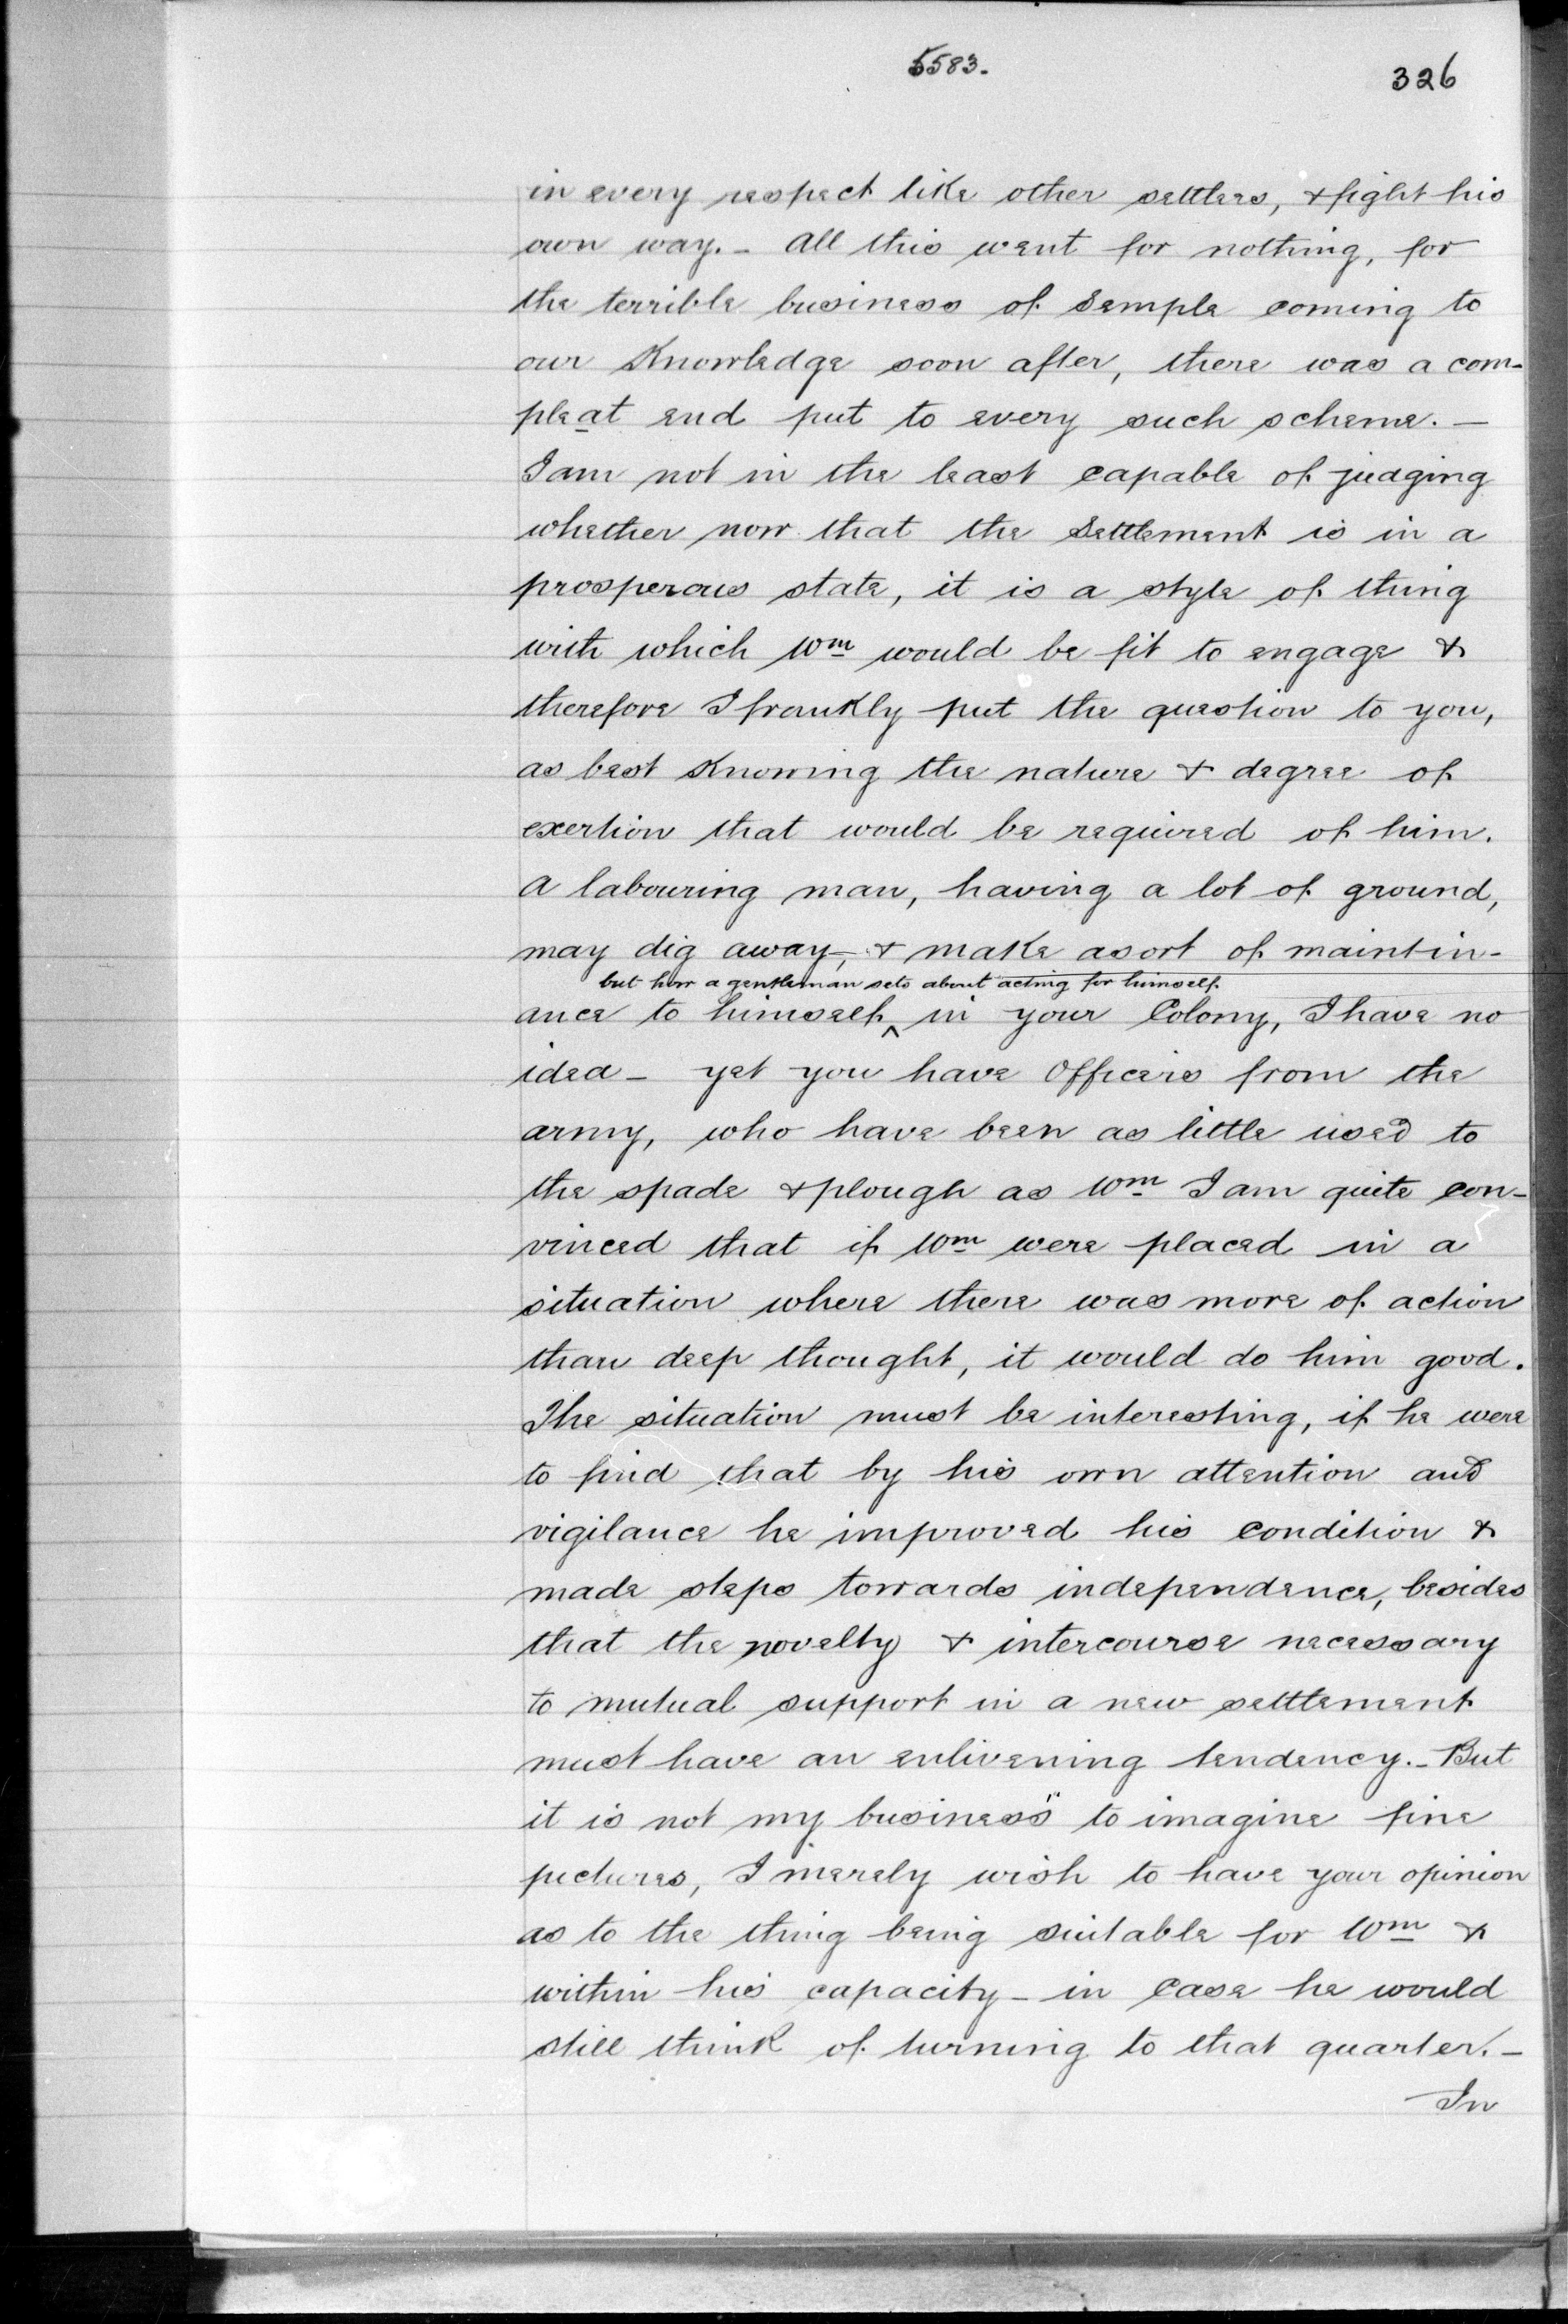 5583.
326
in every respect like other settlers, & fight his
own way. - All this went for nothing, for
the terrible business of Semple coming to
our Knowledge soon after, there was a com-
pleat end put to every such scheme. -
I am not in the least capable of judging
whether now that the Settlement is in a
prosperous state, it is a style of thing
with which Wm would be fit to engage &
therefore I frankly put the question to you,
as best Knowing the nature & degree of
exertion that would be required of him.
A labouring man, having a lot of ground,
may dig away, & make a sort of maintin-
but how a gentleman sets about acting for himself
ance to himself ^ in your Colony, I have no
idea - yet you have Officers from the
army, who have been as little used to
the spade & plough as Wm I am quite con-
vinced that if Wm were placed in a
situation where there was more of action
than deep thought, it would do him good.
The situation must be interesting, if he were
to find that by his own attention and
vigilance he improved his condition &
made steps towards independence, besides
that the novelty & intercourse necessary
to mutual support in a new settlement
must have an enlivening tendency. - But
it is not my business" to imagine fine
pictures, I merely wish to have your opinion
as to the thing being suitable for Wm &
within his capacity - in Case he would
still think of turning to that quarter. -
In